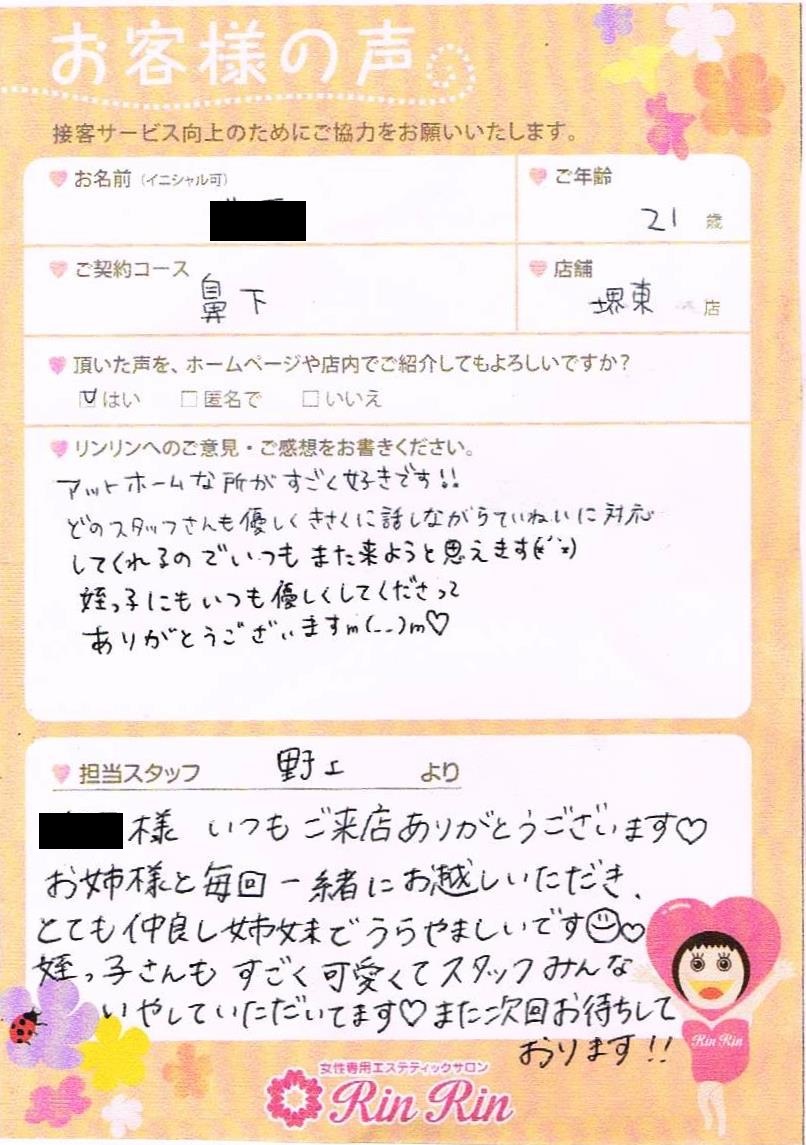 お客様の声
接客サービス向上のためにご協力をお願いいたします。
お名前（イニシャル可）
ご年齢
21 歳
ご契約コース
鼻下
店舗
堺東 店
頂いた声を、ホームページや店内でご紹介してもよろしいですか？
はい 匿名で いいえ
リンリンへのご意見・ご感想をお書きください。
アットホームな所がすごく好きです!!
どのスタッフさんも優しくきさくに話しながらていねいに対応
してくれるのでいつもまた来ようと思えます(*´`*)
姪っ子にもいつも優しくしてくださって
ありがとうございますm(_ _)m♡
担当スタッフ 野上 より
様 いつもご来店ありがとうございます♡
お姉様と毎回一緒にお越しいただき、
とても仲良し姉妹でうらやましいです☺♡
姪っ子さんもすごく可愛くてスタッフみんな
いやしていただいてます♡また次回お待ちして
おります!!
Rin Rin
女性専用エステティックサロン
Rin Rin